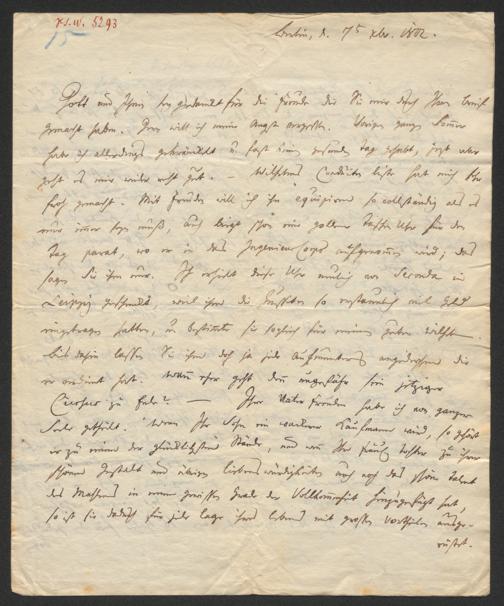 K.S.W. 5293
15
Berlin, d. 7t xbr. 1802.
Gott und Ihnen sey gedankt für die Freude die Sie mir durch Ihren Brief
gemacht haben. Gern will ich meine Angst vergessen. Vorigen ganzen Sommer
habe ich allerdings gekränkelt u fast keinen gesunden Tag gehabt, jezt aber
geht es mir wieder recht gut. — Wilhelms Conduiten liste hat mich sehr
froh gemacht. Mit Freuden will ich ihn equipiren so vollständig als es
nur immer seyn muß, auch liegt schon eine goldene Taschen Uhr für den
Tag parat, wo er in das Ingenieur Corps aufgenommen wird; das
sagen Sie ihm nur. Ich erhielt diese Uhr neulich von Seconda in
Leipzig geschenkt, weil ihm die Hussiten so erstaunlich viel Geld
eingetragen hatten, u bestimmte sie sogleich für meinen guten Wilhelm.
Bis dahin lassen Sie ihm doch ja jede Aufmunterung angedeihen die
er verdient hat. Wann eher geht denn ungefähr sein jetziger
Cursus zu Ende? — Ihre Vater Freuden habe ich von ganzer
Seele getheilt. Wenn Ihr Sohn ein wackerer Kaufmann wird, so gehört
er zu einem der glücklichsten Stände, und wenn Ihre Tochter zu ihrer
schönen Gestalt und übrigen Liebenswürdigkeiten auch noch das schöne Talent
des Mahlens in einem gewissen Grade der Vollkommenheit hinzugefügt hat,
so ist sie dadurch für jede Lage ihres Lebens mit großen Vortheilen ausge-
rüstet.